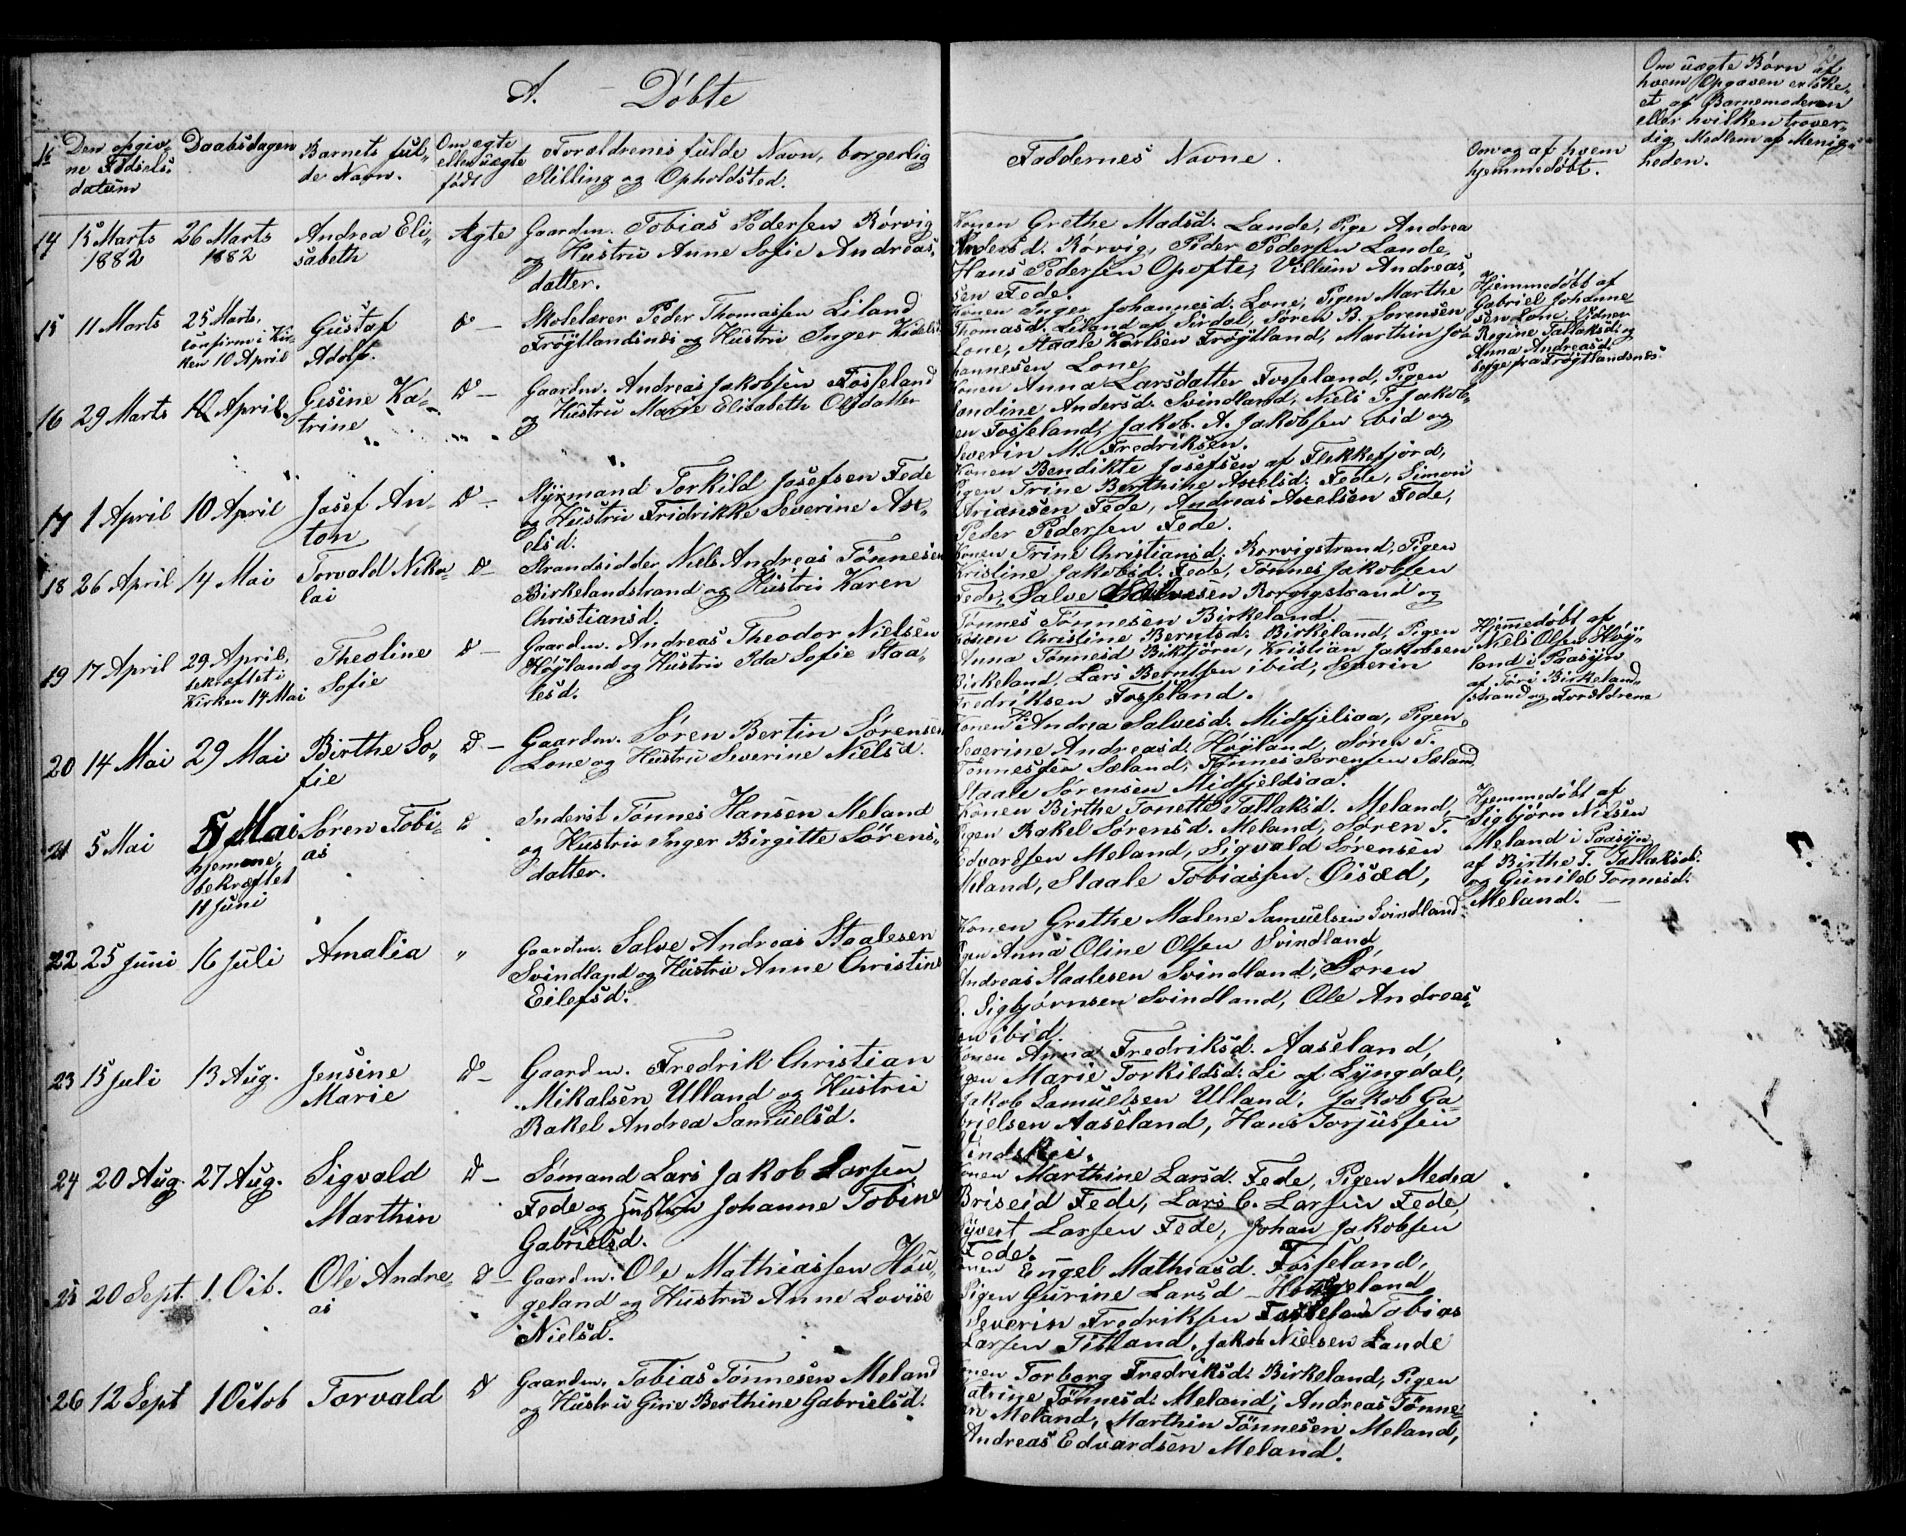 A. — Døbte
№
Den opgiv-
ne Fødsels-
datum
Daabsdagen
Barnets ful-
de Navn.
Om ægte
eller uægte
født
Forældrenes fulde Navn, borgerlig
Stilling og Opholdsted.
Faddernes Navne.
Om og af hvem
hjemmedøbt.
Om uægte Børn af
hvem Opgaven er ske-
et af Barnemoderen
eller hvilken trover-
dig Medlem af Menig-
heden.
14
15 Marts
1882
26 Marts
1882
Andrea Eli-
sabeth
Ægte
Gaardm. Tobias Pedersen Rørvig
og Hustru Anne Sofie Andreas-
datter.
Konen Grethe Madsd. Lande, Pige Andrea
Andersd. Rørvig, Peder Pedersen Lande,
Hans Pedersen Opofte, Villum Andreas-
sen Fede.
15
11 Marts
25 Marts,
confirm i Kir-
ken 10 April
Gustaf
Adolf.
d° —
Skolelærer Peder Thomassen Liland
Frøytlandsnæs og Hustru Inger
Konen Inger Johannesd. Lone, Pigen Marthe
Thomasd. Liland af Sirdal, Søren B. Sørensen
Lone, Staale Karlsen Frøytland, Marthin Jo-
hannesen Lone.
Hjemmedøbt af
Gabriel Johanne-
sen Lone. Vidner
Regine Tallaksd. og
Anna Andreasd.
begge fra Frøytlandsnæs.
16
29 Marts
10 April
Gesine Ka-
trine
D° —
Gaardm. Andreas Jakobsen Fosseland
og Hustru Marie Elisabeth Olsdatter
Konen Anna Larsdatter Fosseland, Pigen
Andersd. Svindland, Niels T. Jakob-
sen Fosseland, Jakob A. Jakobsen ibid og
Severin M. Fredriksen.
17
1 April
10 April
Josef An-
ton
D° -
Nyrmand Torkild Josefsen Fede
og Hustru Fridrikke Severine Ax-
elsd.
Konen Bendikte Josefsen af Flekkefjord,
Pigen Trine Berthine Axelsd. Fede, Simon
Adriansen Fede, Andreas Axelsen Fede,
Peder Pedersen Fede.
18
26 April
14 Mai
Torvald Niko-
lai
D° —
Strandsidder Niels Andreas Tønnesen
Birkelandstrand og Hustru Karen
Christiansd.
Konen Trine Christiansd. Rørvigstrand, Pigen
Kristine Jakobsd. Fede, Tønnes Jakobsen
Fede, Salve Salvesen Rørvigstrand og
Tønnes Tønnesen Birkeland.
19
17 April
29 April,
bekræftet i
Kirken 14 Mai
Theoline
Sofie
D° —
Gaardm. Andreas Theodor Nielsen
Høyland og Hustru Ida Sofie Staa-
lesd.
Konen Christine Berntsd. Birkeland, Pigen
Anna Tønnesd. Biktjørn, Kristian Jakobsen
Birkeland, Lars Berntsen ibid, Severin
Fredriksen Fosseland.
Hjemmedøbt af
Niels Olsen Høy-
land i Paasyn
af Tøri Birkeland-
strand og Forældrene
20
14 Mai
29 Mai
Birthe So-
fie
D° —
Gaardm. Søren Bertin Sørensen
Lone og Hustru Severine Nielsd.
Konen Andrea Salvesd. Midfjelsaa, Pigen
Severine Andreasd. Høyland, Søren T.
Tønnessen Sæland, Tønnes Sørensen Sæland
Staale Sørensen Midfjeldsaa.
21
5 Mai
5 Mai
hjemme,
bekræftet
11 Juni
Søren Tobi-
as
Inderst Tønnes Hansen Meland
og Hustru Inger Birgitte Sørens-
datter.
Konen Birthe Tonette Tallaksd. Meland,
Pigen Rakel Sørensd. Meland, Søren T.
Edvardsen Meland, Sigvald Sørensen
Meland, Staale Tobiassen Øisæd,
Hjemmedøbt af
Sigbjørn Nilsen
Meland i Paasyn
af Birthe T. Tallaksd.
og Gunild Tønnesd.
Meland. —
22
25 Juni
16 Juli
Amalia
"
Gaardm. Salve Andreas Staalesen
Svindland og Hustru Anne Christine
Eilefsd.
Konen Grethe Malene Samuelsen Svindland
Pigen Anna Oline Olsen Svindland,
Andreas Staalesen Svindland, Søren
Sigbjørnsen Svindland, Ole Andreas-
sen ibid.
23
15 Juli
13 Aug.
Jensine
Marie
D° —
Gaardm. Fredrik Christian
Mikalsen Ulland og Hustru
Rakel Andrea Samuelsd.
Konen Anna Fredriksd. Aaseland,
Pigen Marie Torkildsd. Li af Lyngdal,
Jakob Samuelsen Ulland, Jakob Ga-
brielsen Aaseland, Hans Torjussen
Vindskei.
24
20 Aug.
27 Aug.
Sigvald
Marthin
D° —
Sømand Lars Jakob Larsen
Fede og Hustru Johanne Tobine
Gabrielsd.
Konen Marthine Larsd. Fede, Pigen Medea
Briseid Fede, Lars C. Larsen Fede,
Syvert Larsen Fede, Johan Jakobsen
Fede.
25
20 Sept.
1 Octb.
Ole Andre-
as
D° —
Gaardm. Ole Mathiassen Hou-
geland og Hustru Anne Lovise
Nielsd.
Konen Engel Mathiasd. Fosseland,
Pigen Gurine Larsd — Hougeland
Severin Fredriksen Fosseland Tobias
Larsen Titland, Jakob Nielsen Lande
26
12 Sept
1 Octob
Torvald
D°
Gaardm. Tobias Tønnesen Meland
og Hustru Guri Berthine Gabrielsd.
Konen Torborg Fredriksd. Birkeland, Pigen
Katrine Tønnesd. Meland, Andreas Tønne-
sen Meland, Marthin Tønnesen Meland,
Andreas Edvardsen Meland.